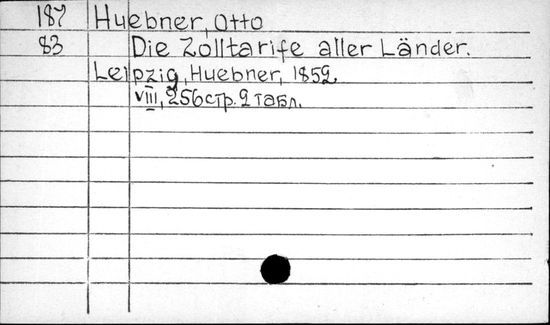 187 Huebner, Otto
83 Die Zolltarife aller Länder.
Leipzig, Huebner, 1852.
VIII, 256 стр. 2 табл.